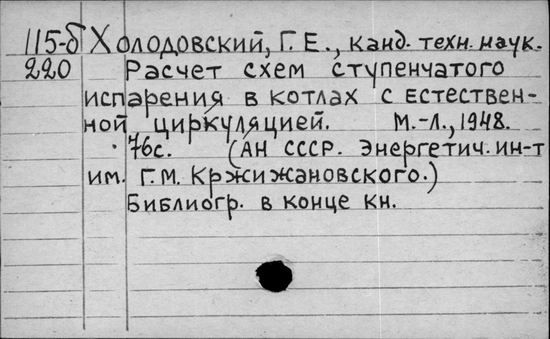 115-б Холодовский, Г. Е., канд. техн. наук.
220 Расчет схем ступенчатого
испарения в котлах с естествен-
ной циркуляцией. М.-Л., 1948.
76с. (АН СССР. Энергетич. ин-т
им. Г.М. Кржижановского.)
Библиогр. в конце кн.